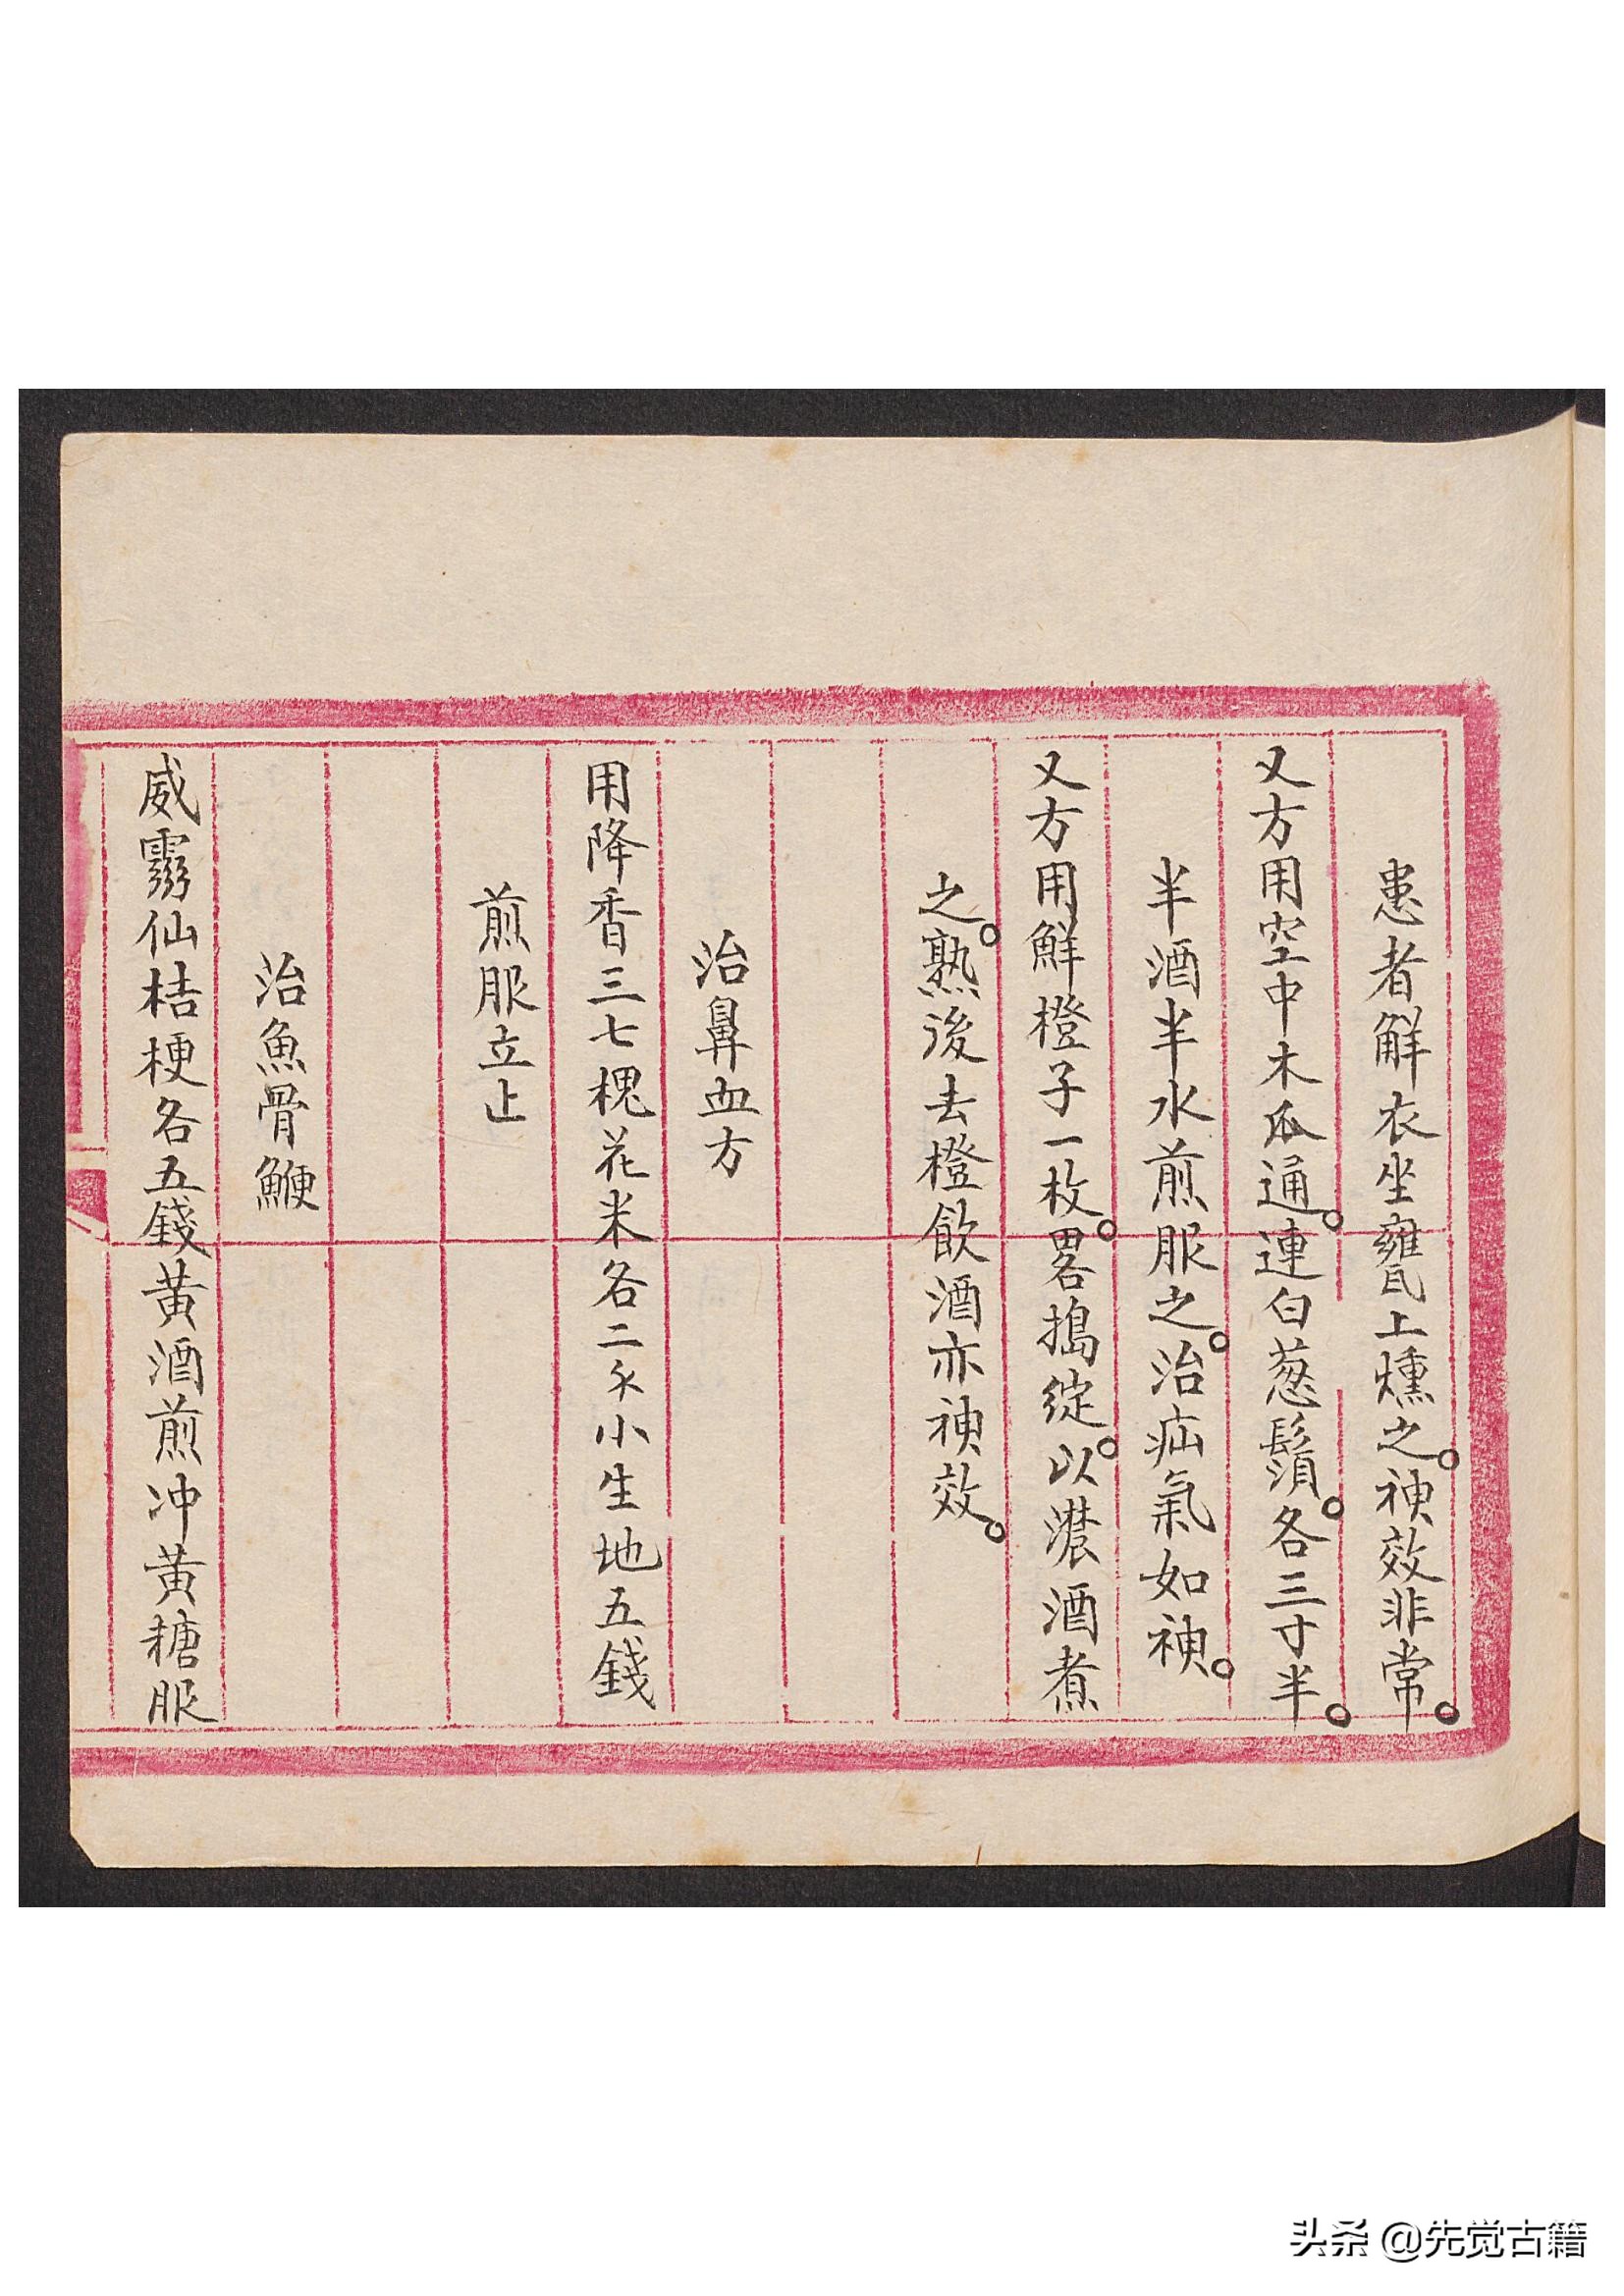 患者解衣坐甕上燻之。神效非常。
又方用空中木瓜通。連白葱鬚。各三寸半。
半酒半水煎服之。治疝氣如神。
又方用鮮橙子一枚。畧搗綻。以濃酒煮
之。熟後去橙飲酒亦神效。
治鼻血方
用降香三七槐花米各二小生地五錢
煎服立止
治魚骨鯁
威靈仙桔梗各五錢黃酒煎冲黃糖服
头条 @先觉古籍